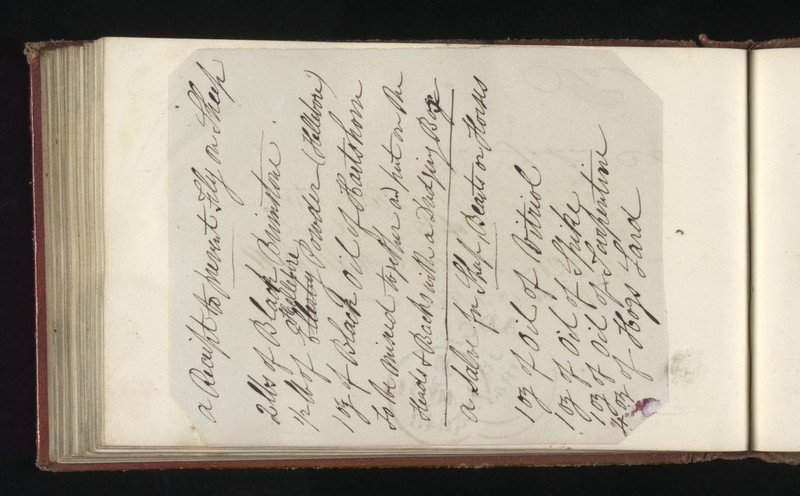 a Receipt to prevent Fly on Sheep
2lbs of Black Brimstone
Hellebore
1/2lb of Powder (Hellebore)
1oz of Black Oil of Hartshorn
to be mixed together and put on the
Heads & Backs with a Dredging Box
a Salve for Sheep Beasts or Horses
1oz of Oil of Vitriol
1oz of Oil of Spike
1oz of Oil of Turpentine
4oz of Hogs Lard